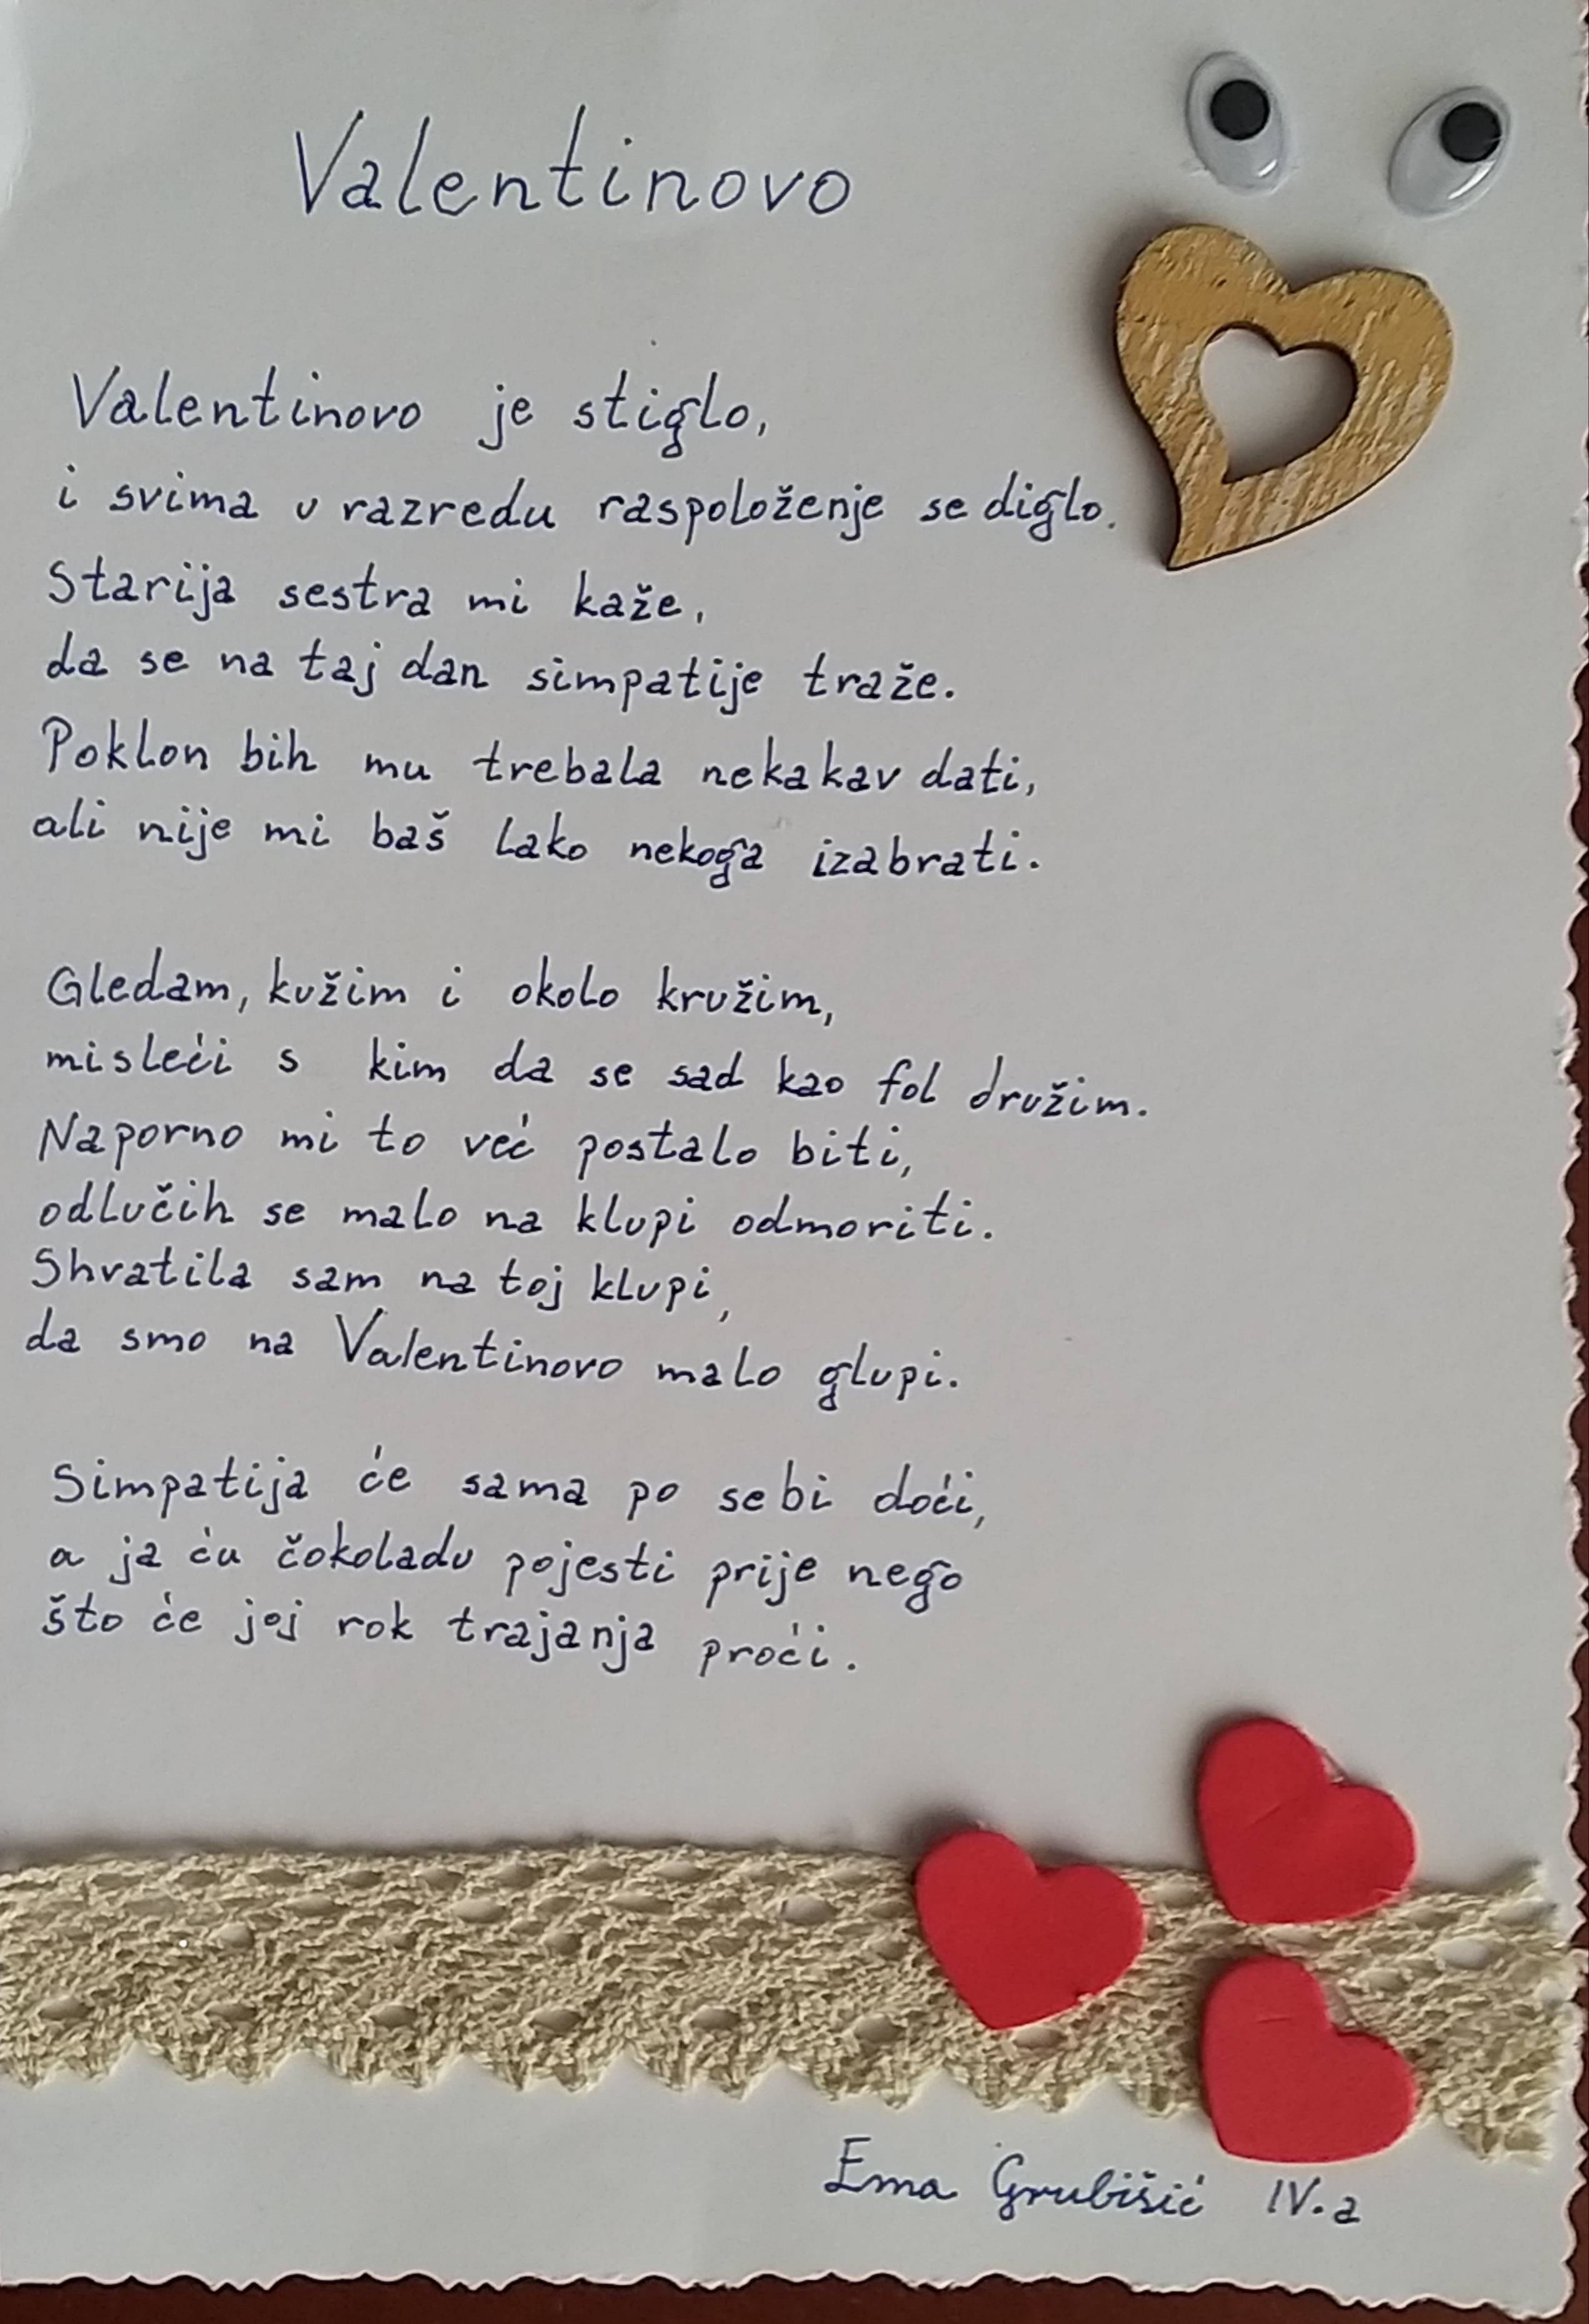 Valentinovo
Valentinovo je stiglo,
i svima u razredu raspoloženje se diglo.
Starija sestra mi kaže,
da se na taj dan simpatije traže.
Poklon bih mu trebala nekakav dati,
ali nije mi baš lako nekoga izabrati.
Gledam, kužim i okolo kružim,
misleći s kim da se sad kao fol družim.
Naporno mi to već postalo biti,
odlučih se malo na klupi odmoriti.
Shvatila sam na toj klupi,
da smo na Valentinovo malo glupi.
Simpatija će sama po sebi doći,
a ja ću čokoladu pojesti prije nego
što će joj rok trajanja proći.
Ema Grubišić IV.a